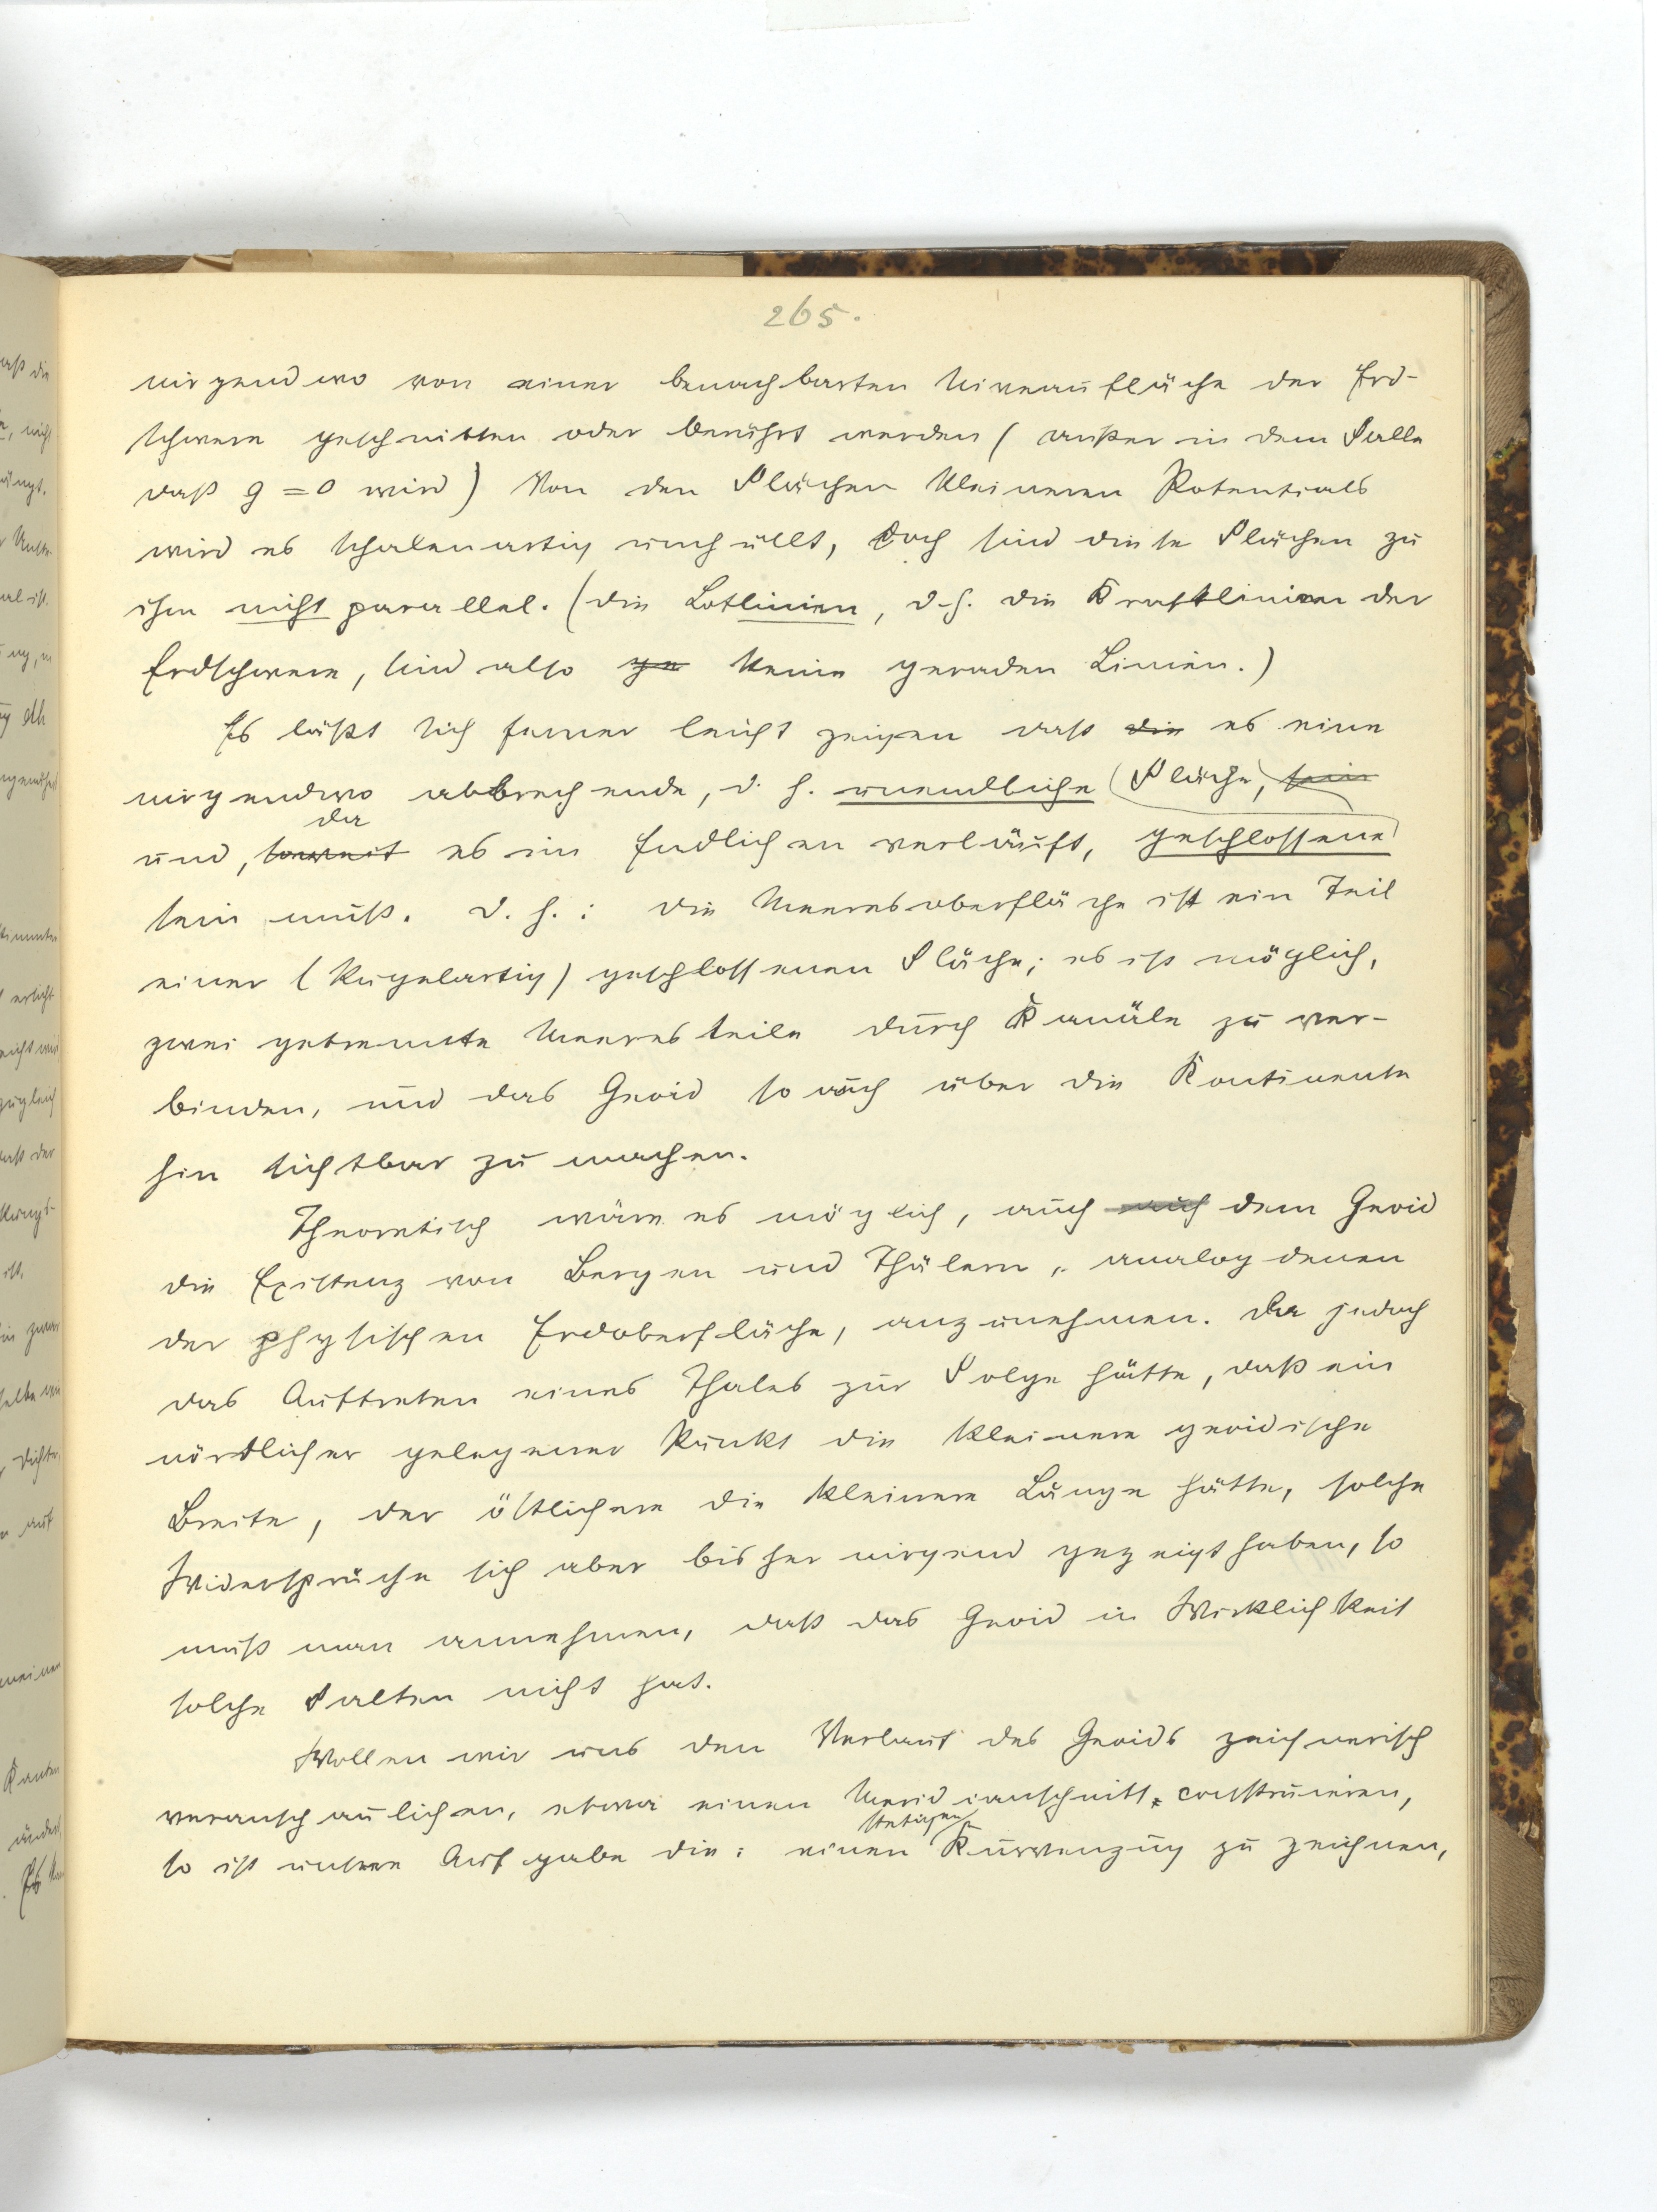 265.
nirgendwo von einer benachbarten Niveaufläche der Erd-
schwere geschnitten oder berührt werden (außer in dem Falle
daß g = 0 wird) Von den Flächen kleineren Potentials
wird es schalenartig umhüllt, doch sind diese Flächen zu
ihm nicht parallel. (Die Lotlinien, d. h. die Kraftlinien der
Erdschwere, sind also ge keine geraden Linien.)
Es läßt sich ferner leicht zeigen daß die es eine
nirgendwo abbrechende, d. h. unendliche Fläche, sein
da
und, soweit es im Endlichen verläuft, geschlossene
sein muß. D. h.: die Meeresoberfläche ist ein Teil
einer (kugelartig) geschlossenen Fläche; es ist möglich,
zwei getrennte Meeresteile durch Kanäle zu ver-
binden, und das Geoid so auch über die Kontinente
hin sichtbar zu machen.
Theoretisch wäre es möglich, auch auch dem Geoid
die Existenz von Bergen und Thälern, analog denen
der physischen Erdoberfläche, anzunehmen. Da jedoch
das Auftreten eines Thales zur Folge hätte, daß ein
nördlicher gelegener Punkt die kleinere geoidische
Breite, der östlichere die kleinere Länge hätte, solche
Widersprüche sich aber bisher nirgend gezeigt haben, so
muß man annehmen, daß das Geoid in Wirklichkeit
solche Falten nicht hat.
Wollen wir uns den Verlauf des Geoids zeichnerisch
veranschaulichen, etwa einen Meridianschnitt construieren,
stetigen
so ist unsere Aufgabe die: einen Kurvenzug zu zeichnen,